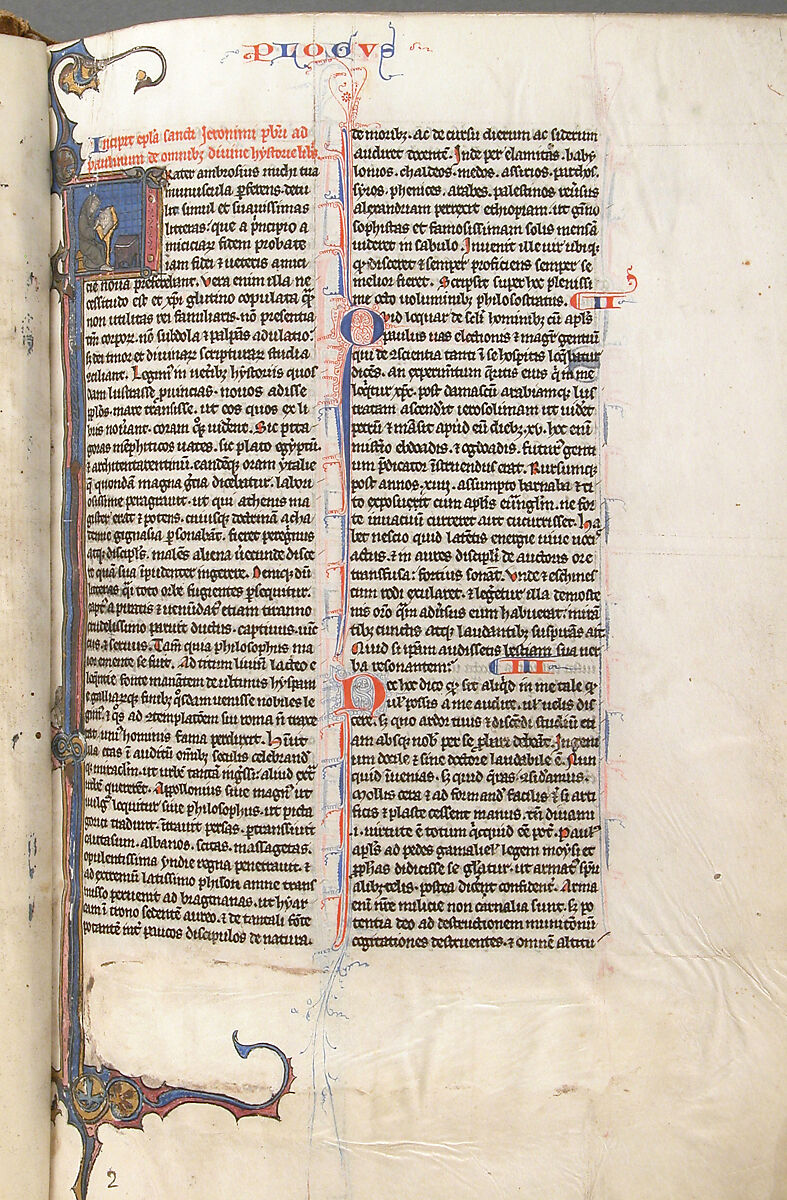 PLOGUS
Incipit epla sancti Jeronimi pbri ad
paulinum de omnibz divine hystorie libris
Frater ambrosius michi tua
munuscula pferens detu
lit simul et suavissimas
litteras que a pncipio a
miciciar fidem probate
iam fidei et veteris amici
cie nova preferebant. Vera enim illa ne
cessitudo est et xpi glutino copulata qm
non utilitas rei familiaris. no presentia
tm corpor. no subdola et palpans adulatio.
sz dei timor et divinar scripturar studia
ciliant. Legim in vetibz hystoriis quos
dam lustrasse puincias. novos adisse
pplos. mare transisse. ut eos quos ex li
bris noverant. coram qqz viderent. Sic pita
goras memphiticos vates. sic plato egyptum.
et architentarentinum. eandemqz oram ytalie
q quondam magna gtia dicebatur. labori
osissime peragravit. ut qui athenis ma
gister erat et potens. cuiusqz doctrinam acha
demie gignasia psonabant. fieret peregrinus
atqz discipls. malens aliena verecunde disce
re qua sua ipudenter ingerere. Deniqz du
litteras qsi toto orbe fugientes psequitur.
captus a piratis et venundatus etiam tiranno
crudelissimo paruit ductus. captivus. vinc
tus et servus. Tam quia philosophus ma
ior emente se fuit. Ad titum livium lacteo e
loqntie fonte manantem de ultimis hyspani
e galliarqz finibz qsdam venisse nobiles le
gim. et qs ad templatoem sui roma n traxe
rat uni hominis fama perduxit. Habuit
illa etas inauditum omibz seculis celebrand
qz miraclm. ut urbe tanta ingressi aliud extra
urbe quererent. Appollonius sive magus ut
vulgus loquitur sive philosophus. ut picta
gorici tradunt. intravit persas. ptransivit
caucasum. albanos. scitas. massagetas.
opulentissima yndie regna penetravit. et
ad extremum latissimo phison amne trans
misso pervenit ad bragmanas. ut hyar
cam i trono sedente aureo. et de tantali fote
potante int paucos discipulos de natura.
de moribz. ac de cursu dierum ac siderum
audiret docente. Inde per elamitas. baby
lonios. chaldeos. medos. assirios. parthos.
syros. phenices. arabes. palestinos reversus
alexandriam perrexit ethiopiam. ut gimno
sophistas et famosissimam solis mensam
videret in sabulo. Invenit ille vir ubiqz
qd disceret et semper proficiens semper se
melior fieret. Scripsit super hoc plenissi
me octo voluminibz philosostratus. C. II.
Quid loquar de seculi hominibz cu apls
paulus vas electionis et magr gentium
qui de scientia tanti i se hospitis loquebatur
dices. an experimentum qritis eius q in me
loqtur xpc. post damascu arabiamqz lus
tratam ascendit ierosolimam ut videret
petrum et mansit apud eu diebz. xv. hoc eni
misterio ebdoadis. et ogdoadis. futurus genti
um pdicator instruendus erat. Rursumqz
post annos. xiiii. assumpto barnaba et ti
to exposuerit cum aplis evanglm. ne for
te invacuum curreret aut cucurrisset. Ha
bet nescio quid latentis energie vive vocis
actus. et in aures discipli de auctoris ore
transfusa fortius sonat. Unde et eschines
cum rodi exularet. et legeretur illa demoste
nis oratio qm adversus eum habuerat. mirati
tibz cunctis atqz laudantibz suspirans ait
Quid si ipam audissetis bestiam sua ver
ba resonantem. C. III.
Nec hec dico qd sit aliqd in me tale qd
vel possis a me audire. vel velis dis
cere. sz quo ardor tuus et discendi studium eti
am absqz nobis per se pbari debeat. Ingeni
um docile et sine doctore laudabile e. Non
quid invenias. sz quid queras sidamus.
Mollis cera et ad formand facilis et si arti
ficis et plaste cessent manus. tn divanu
.i. virtute e totum qcquid ee pot. Paulus
apls ad pedes gamaliel legem moysi et
pphas didicisse se gliatur. ut armat spu
alibz telis. postea diceret confidenter. Arma
eni nre milicie non carnalia sunt. sz po
tentia deo ad destructionem munitionum
cogitationes destruentes. et omnem altitu
2